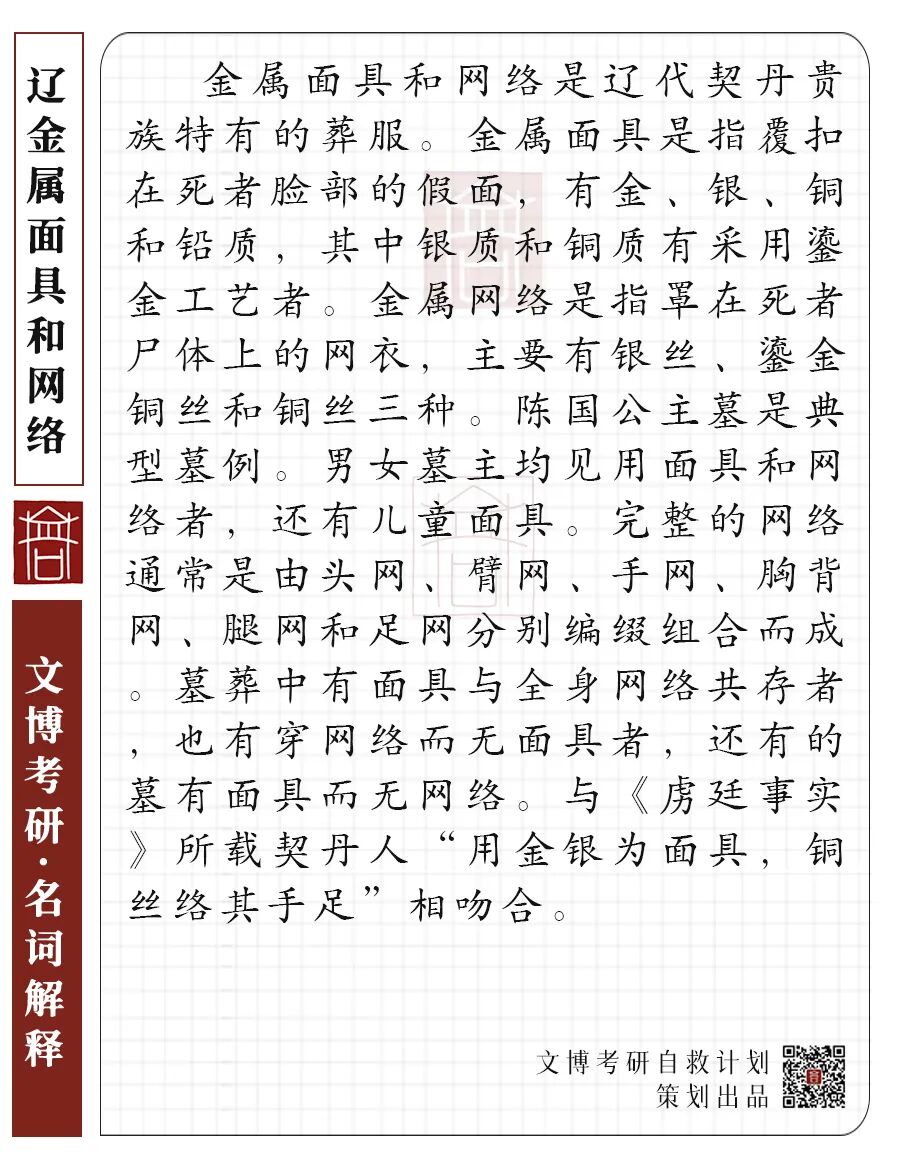 辽金属面具和网络
文博考研·名词解释
金属面具和网络是辽代契丹贵
族特有的葬服。金属面具是指覆扣
在死者脸部的假面，有金、银、铜
和铅质，其中银质和铜质有采用鎏
金工艺者。金属网络是指罩在死者
尸体上的网衣，主要有银丝、鎏金
铜丝和铜丝三种。陈国公主墓是典
型墓例。男女墓主均见用面具和网
络者，还有儿童面具。完整的网络
通常是由头网、臂网、手网、胸背
网、腿网和足网分别编缀组合而成
。墓葬中有面具与全身网络共存者
，也有穿网络而无面具者，还有的
墓有面具而无网络。与《虏廷事实
》所载契丹人“用金银为面具，铜
丝络其手足”相吻合。
文博考研自救计划
策划出品